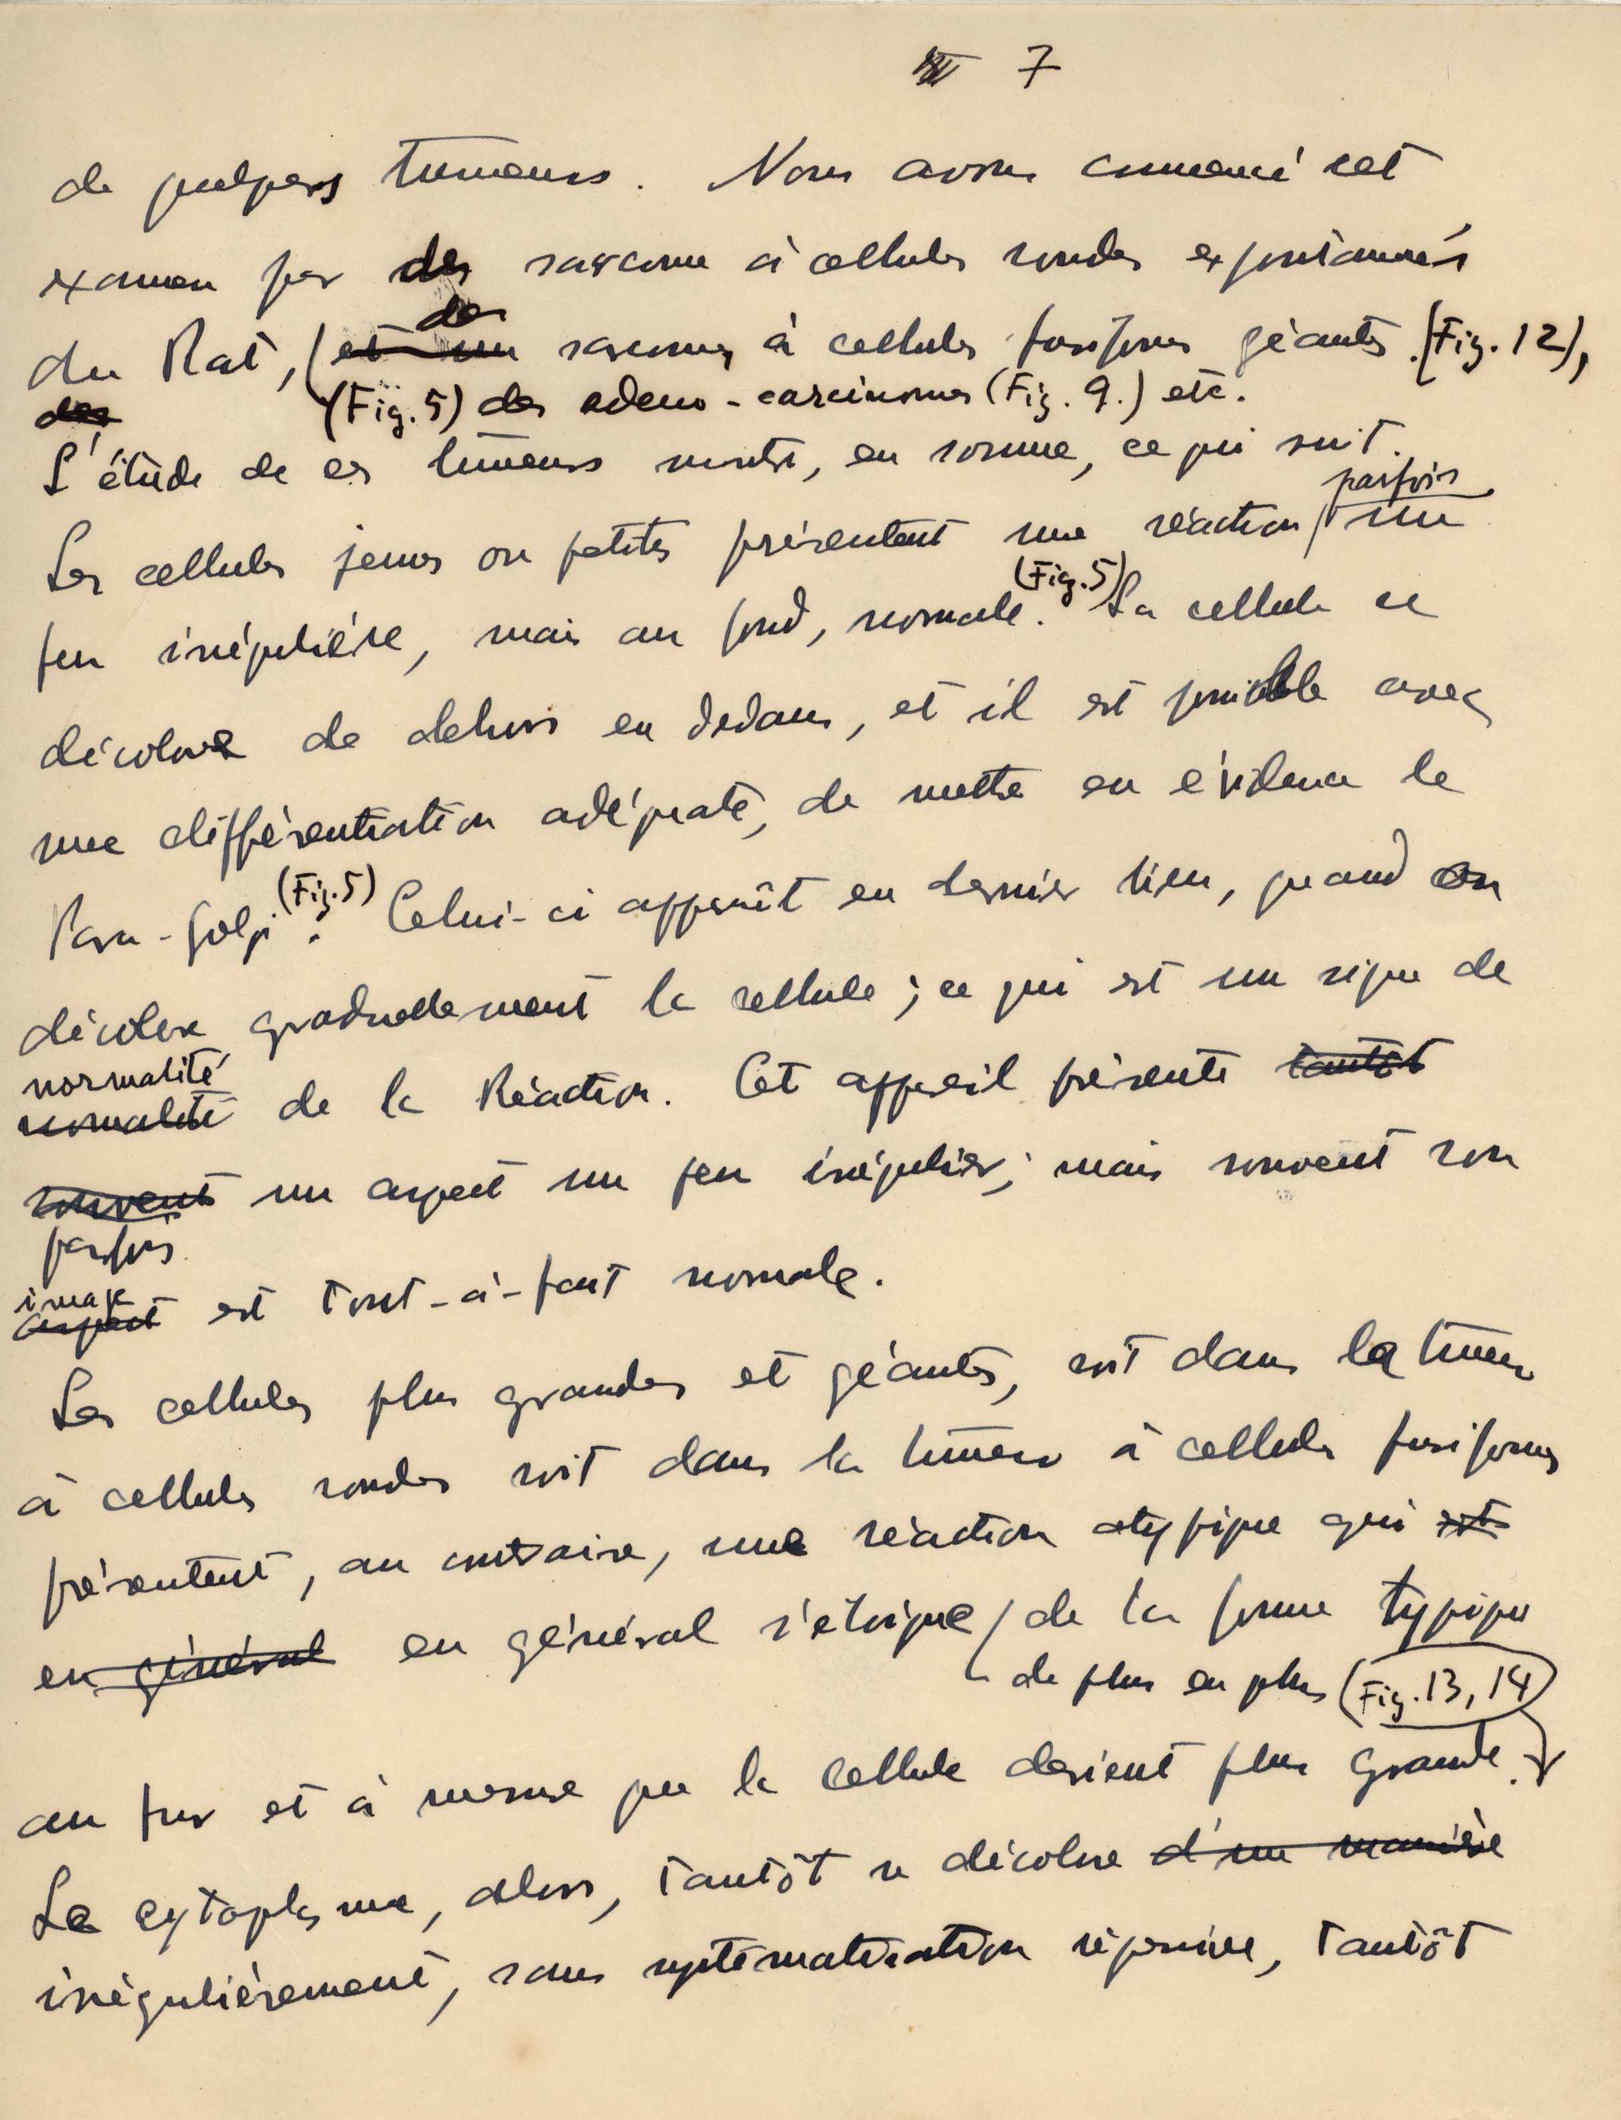 7
de quelques tumeurs. Nous avons commencé cet
examen par des sarcome à cellules rondes espontannés
du Rat, (Fig. 5) et un des sarcomes à cellules fusiformes géantes (Fig. 12),
des adeno-carcinomes (Fig. 9.) etc.
des
L'étude de ces tumeurs montre, en somme, ce qui suit.
Les cellules jeunes ou petites présentent une réaction parfois un
peu irrégulière, mais au fond, normale. (Fig. 5) La cellule se
décolore de dehors en dedans, et il est possible avec
une différentiation adéquate, de mettre en évidence le
Para-Golgi (Fig. 5). Celui-ci apparaît en dernier lieu, quand on
décolore graduellement la cellule; ce qui est un signe de
normalité
normalité de la Réaction. Cet appareil présente tantôt
souvent un aspect un peu irrégulier; mais souvent son
parfois
image
aspect est tout-à-fait normale.
Les cellules plus grandes et géantes, soit dans la tumeur
à cellules rondes soit dans la tumeur à cellules fusiformes
présentent, au contraire, une réaction atypique qui est
en général en général s'éloigne de la forme typique
de plus en plus (Fig. 13, 14)
au fur et à mesure que la cellule devient plus grande.
Le cytoplasme, alors, tantôt se décolore d'une manière
irrégulièrement, sans systématisation répressive, tantôt